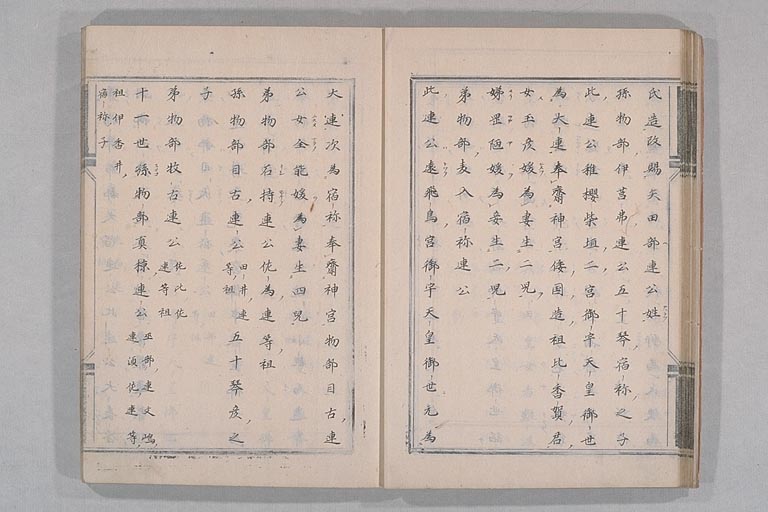 氏造改賜矢田部連公姓
孫物部伊莒弗連公五十琴宿祢之子
此連公稚櫻柴垣二宮御宇天皇御世
為大連奉齋神宮倭国造祖比香賀君
女玉彦媛為妻生二児
娣罡陋媛為妾生二児
弟物部麦入宿祢連公
此連公遠飛鳥宮御宇天皇御世元為
大連次為宿祢奉齋神宮物部目古連
公女全能媛為妻生四児
弟物部石持連公佐為連等祖
孫物部目古連公田井連等祖五十琴彦之
子
弟物部牧古連公佐比佐連等祖
十一世孫物部真椋連公巫部連文嶋連須佐連等
祖伊香井
宿祢子